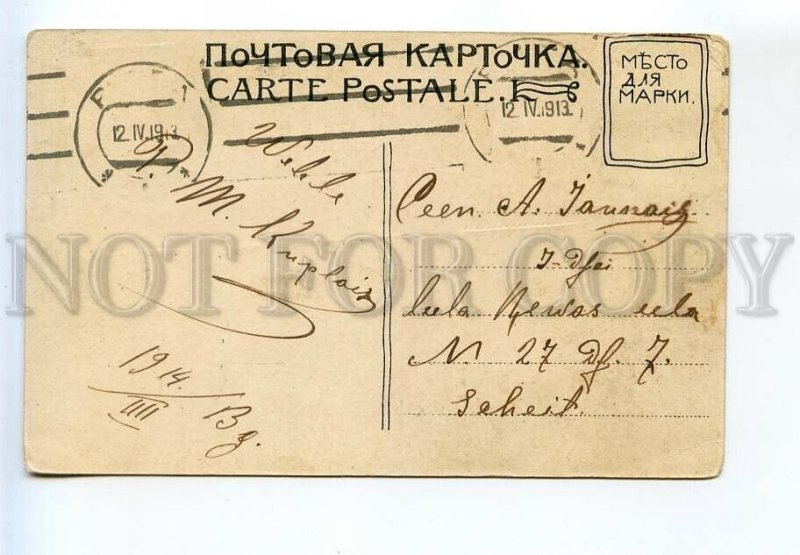 ПОЧТОВАЯ КАРТОЧКА.
CARTE POSTALE.
МѢСТО
ДЛЯ
МАРКИ.
12.IV.1913
12.IV.1913
M. Kruplais
1914.
IIII
Ceen A. Jaunais
leela Rewas eela
M 27 Df. 7.
Scheit.
NOT FOR COPY